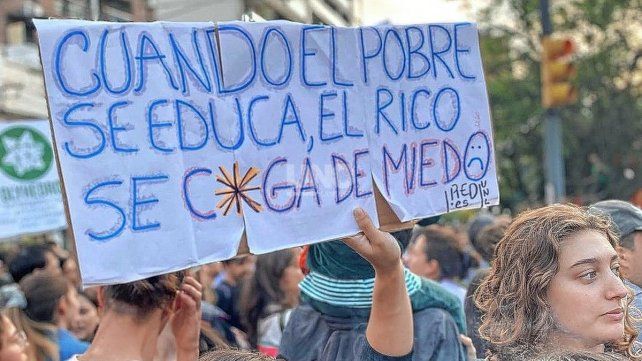 CUANDO EL POBRE
SE EDUCA, EL RICO
SE C*GA DE MIEDO